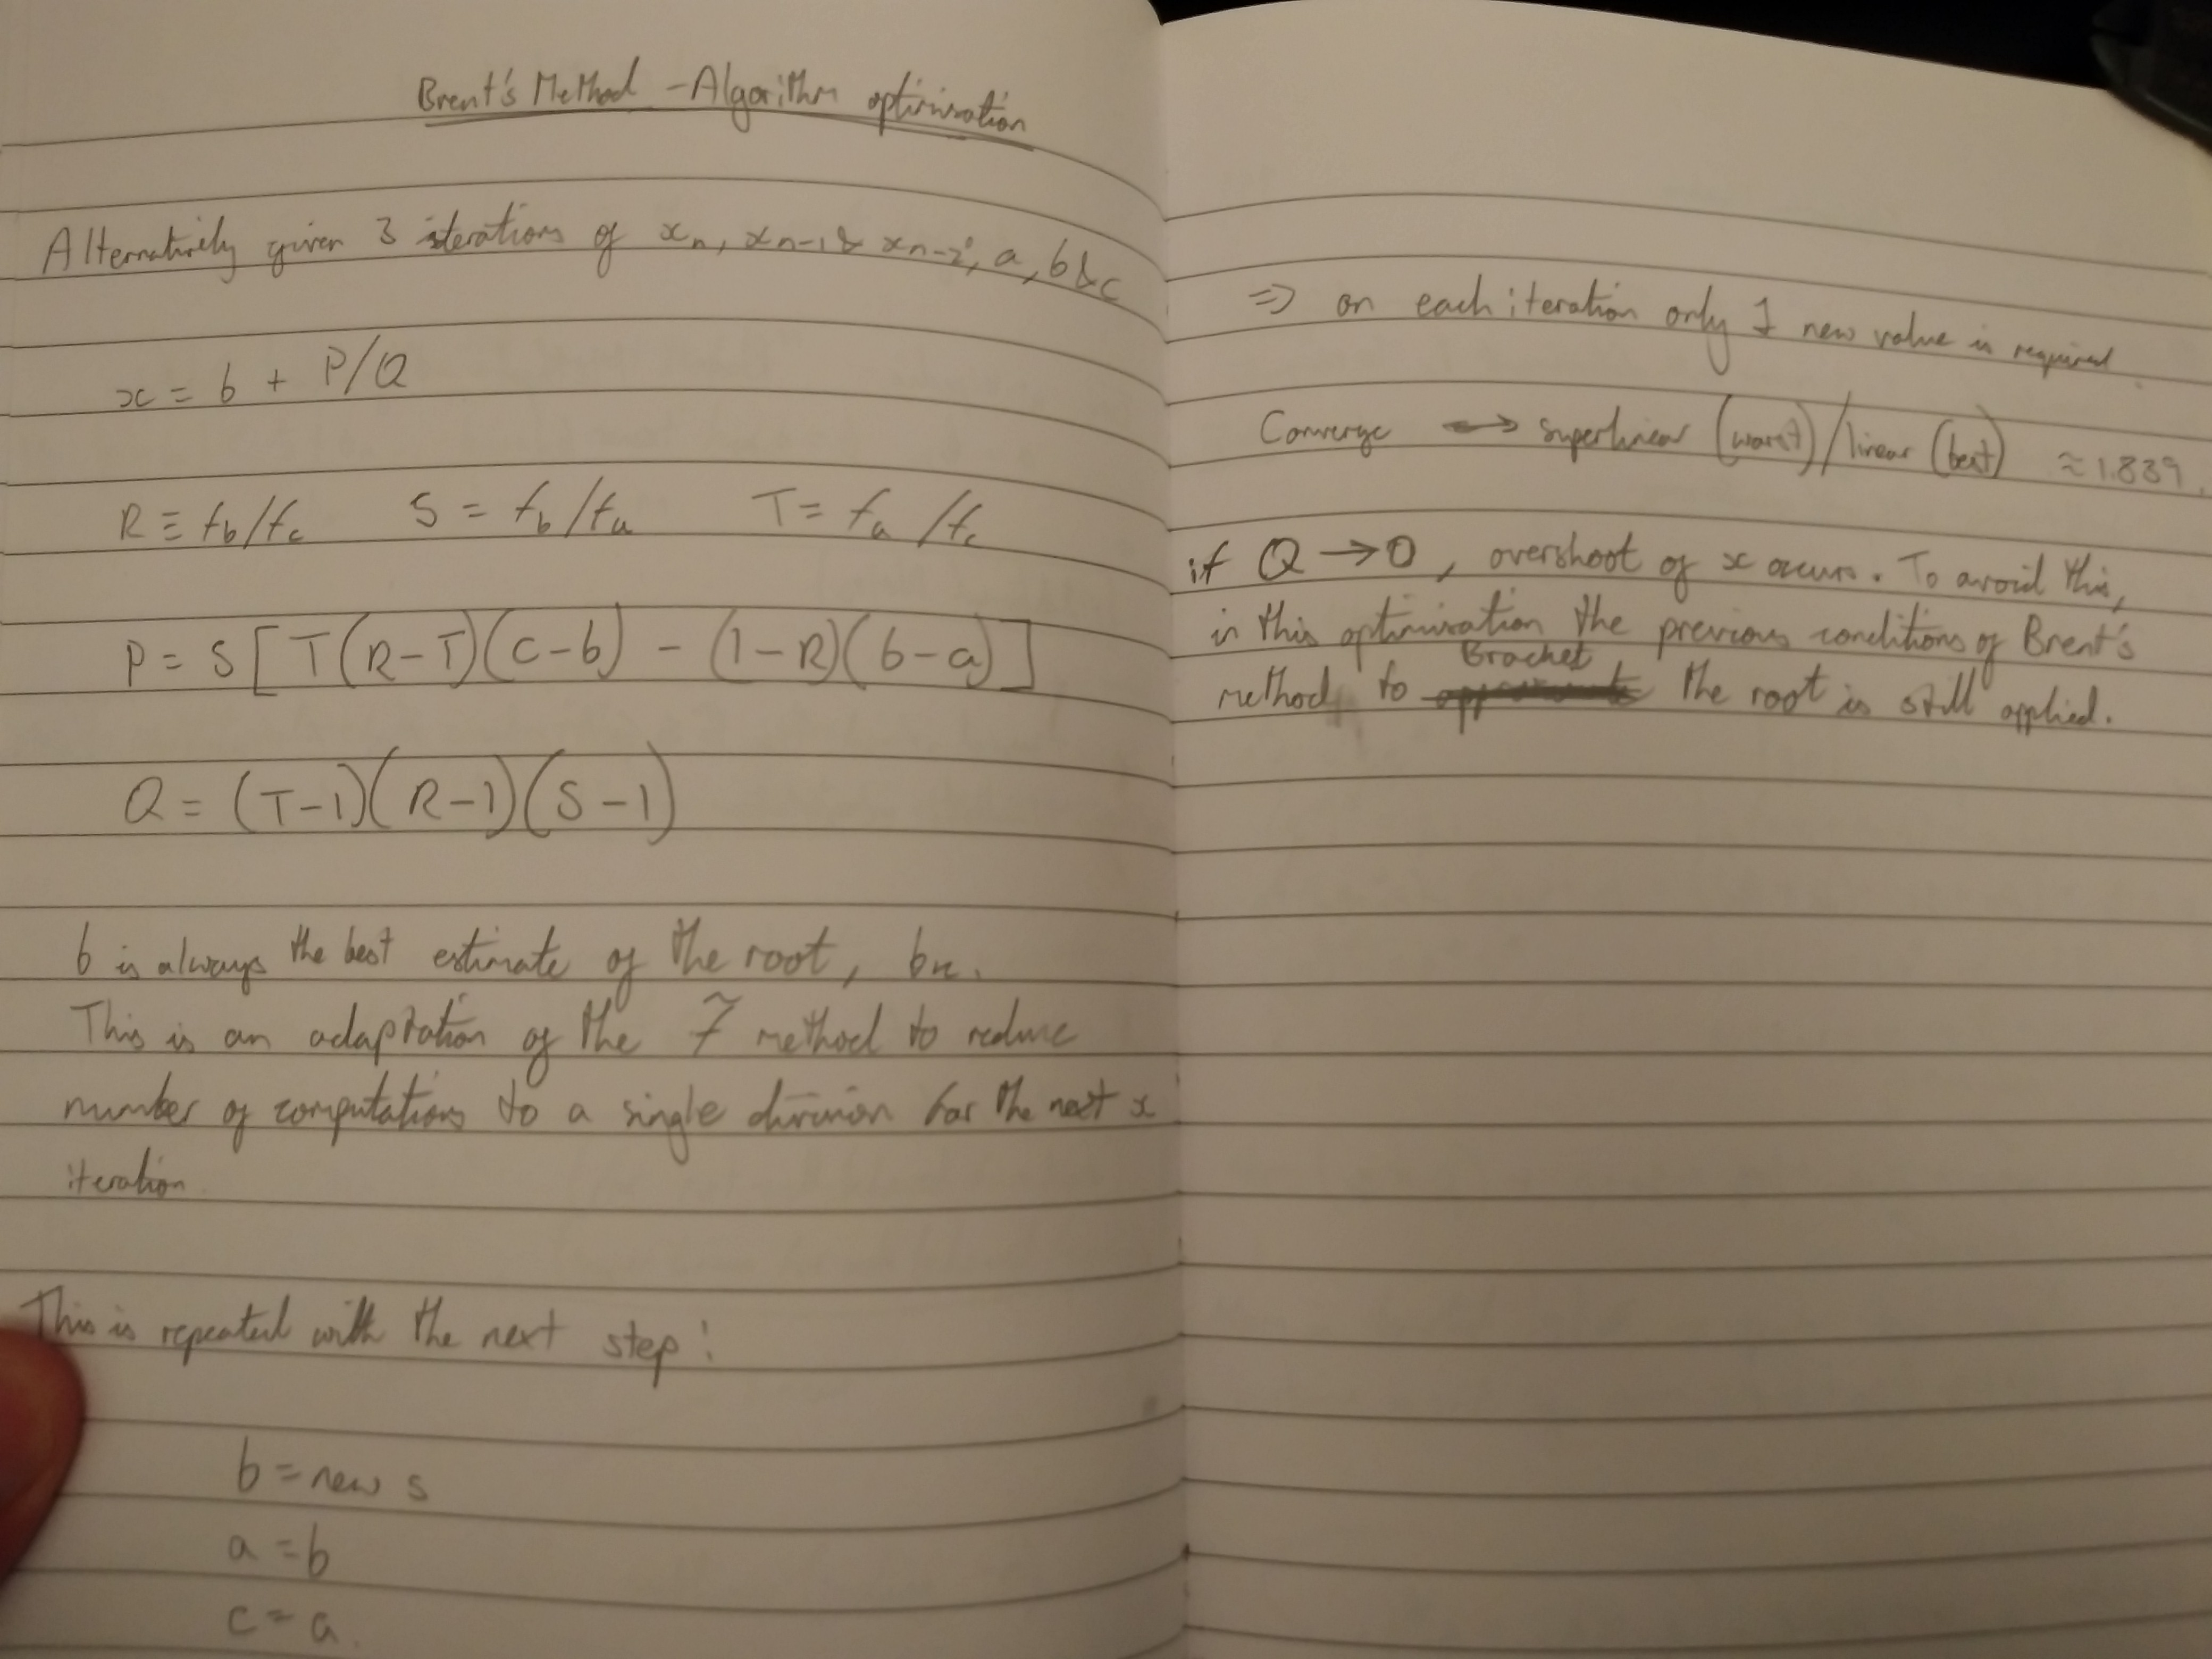 Brent's Method - Algorithm optimisation
Alternatively given 3 iterations of xn, xn-1 & xn-2, a, b & c
x = b + P/Q
R ≡ fb/fc S = fb/fa T = fa/fc
P = S[T(R-T)(c-b) - (1-R)(b-a)]
Q = (T-1)(R-1)(S-1)
b is always the best estimate of the root, bn.
This is an adaptation of the method to reduce
number of computations to a single division for the next x
iteration
This is repeated with the next step:
b = new s
a = b
c = a.
⇒ on each iteration only 1 new value is required.
Converge → superlinear (worst)/linear (best) ≈ 1.839.
if Q → 0, overshoot of x occurs. To avoid this,
in this optimisation the previous conditions of Brent's
method, to Bracket the root is still applied.